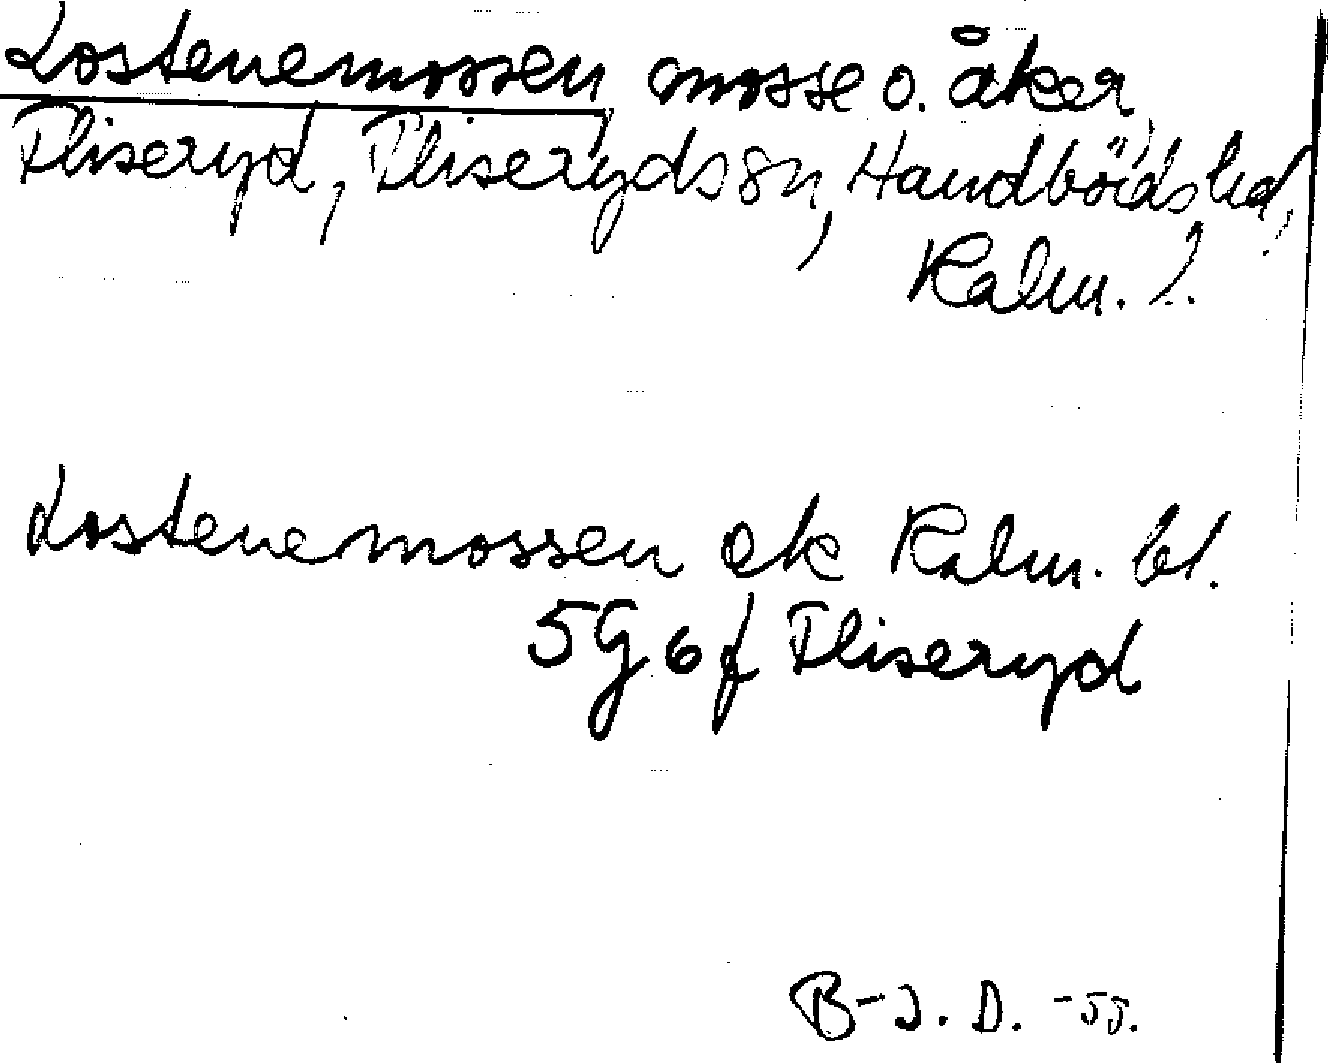 Lostenemossen mosse o. åker,
Fliseryd, Fliseryds sn, Handbörds hd,
Kalm. l.
Lostenemossen ek Kalm. bl.
5G 6f Fliseryd
B-J. D. -55.